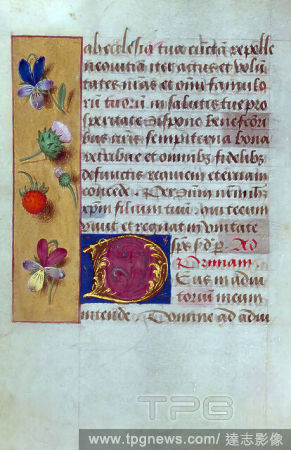 ab ecclesia tua cunctam repelle
nequitiam iter actus et volun
tates nr̄as et om̄ium famulo
rū tuorū in salutis tue pro
speritate dispone benefactori
bus nr̄is sempiterna bona
retribue et omnibus fidelibus
defunctis requiem eternam
concede. Per dn̄um nr̄m ihm̄
xp̄m filium tuū. qui tecum
vivit et regnat in unitate
sp̄s s. d. p. Ad
Primam.
Deus in adiu
torium meum
intende. Domine ad adiu
TPG
www.tpgnews.com/ 達志影像